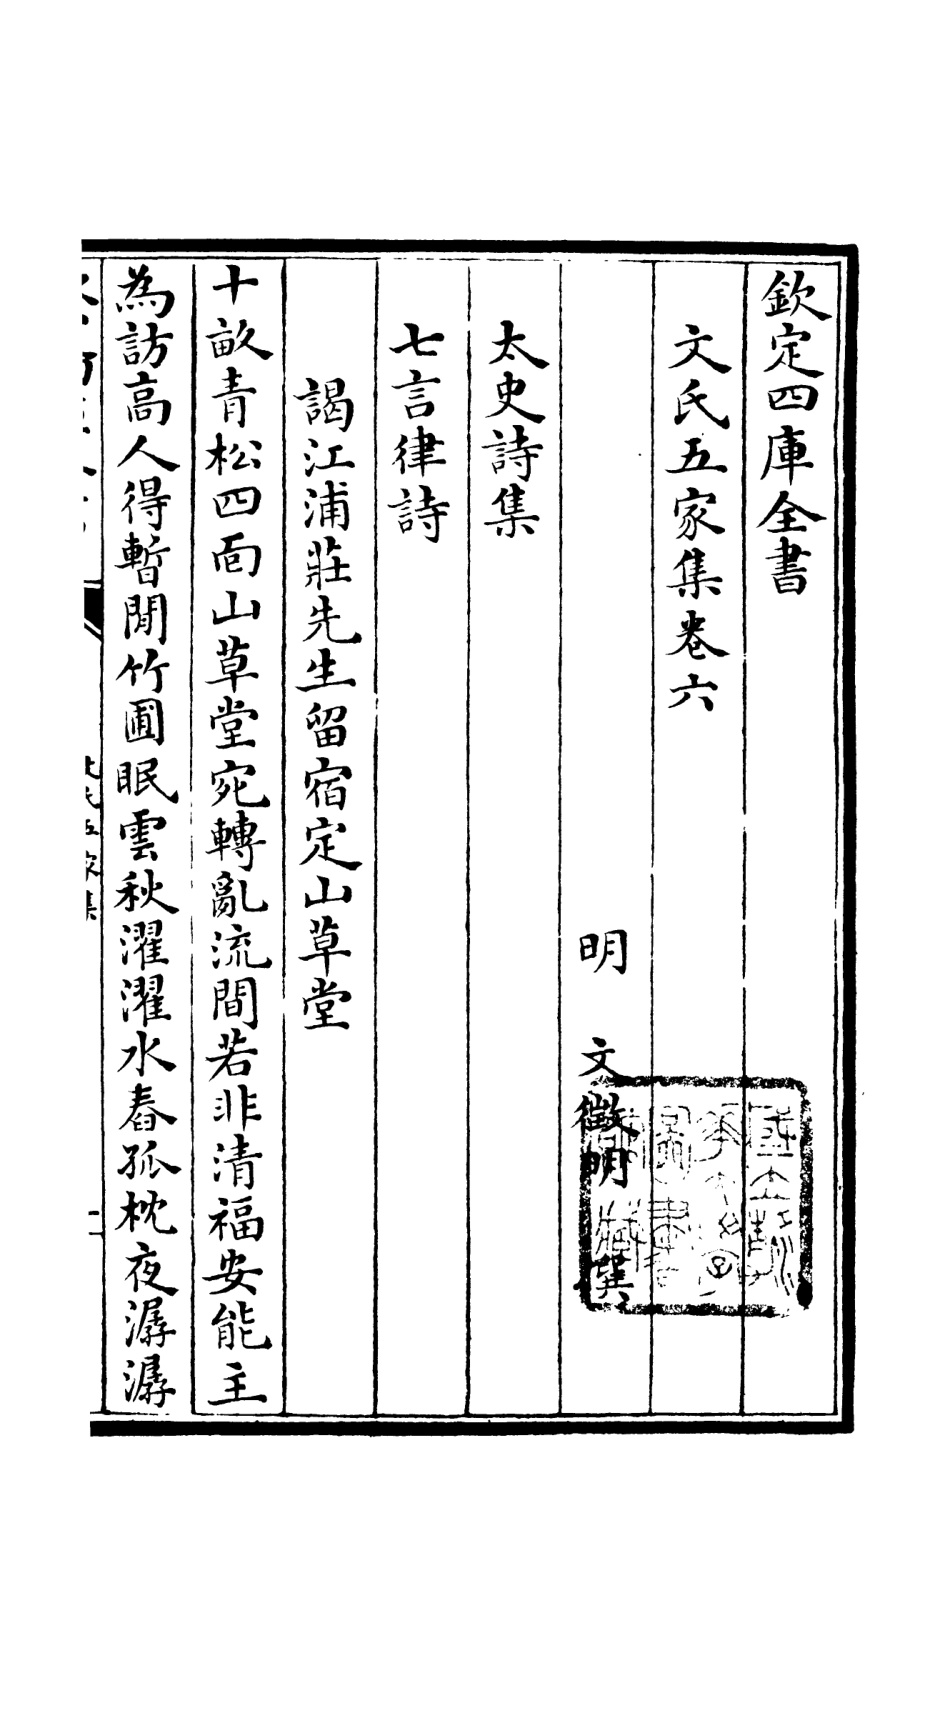 欽定四庫全書
文氏五家集卷六
明 文徵明 撰
太史詩集
七言律詩
謁江浦莊先生留宿定山草堂
十畝青松四面山草堂宛轉亂流間若非清福安能主
為訪高人得暫閒竹圃眠雲秋濯濯水舂孤枕夜潺潺